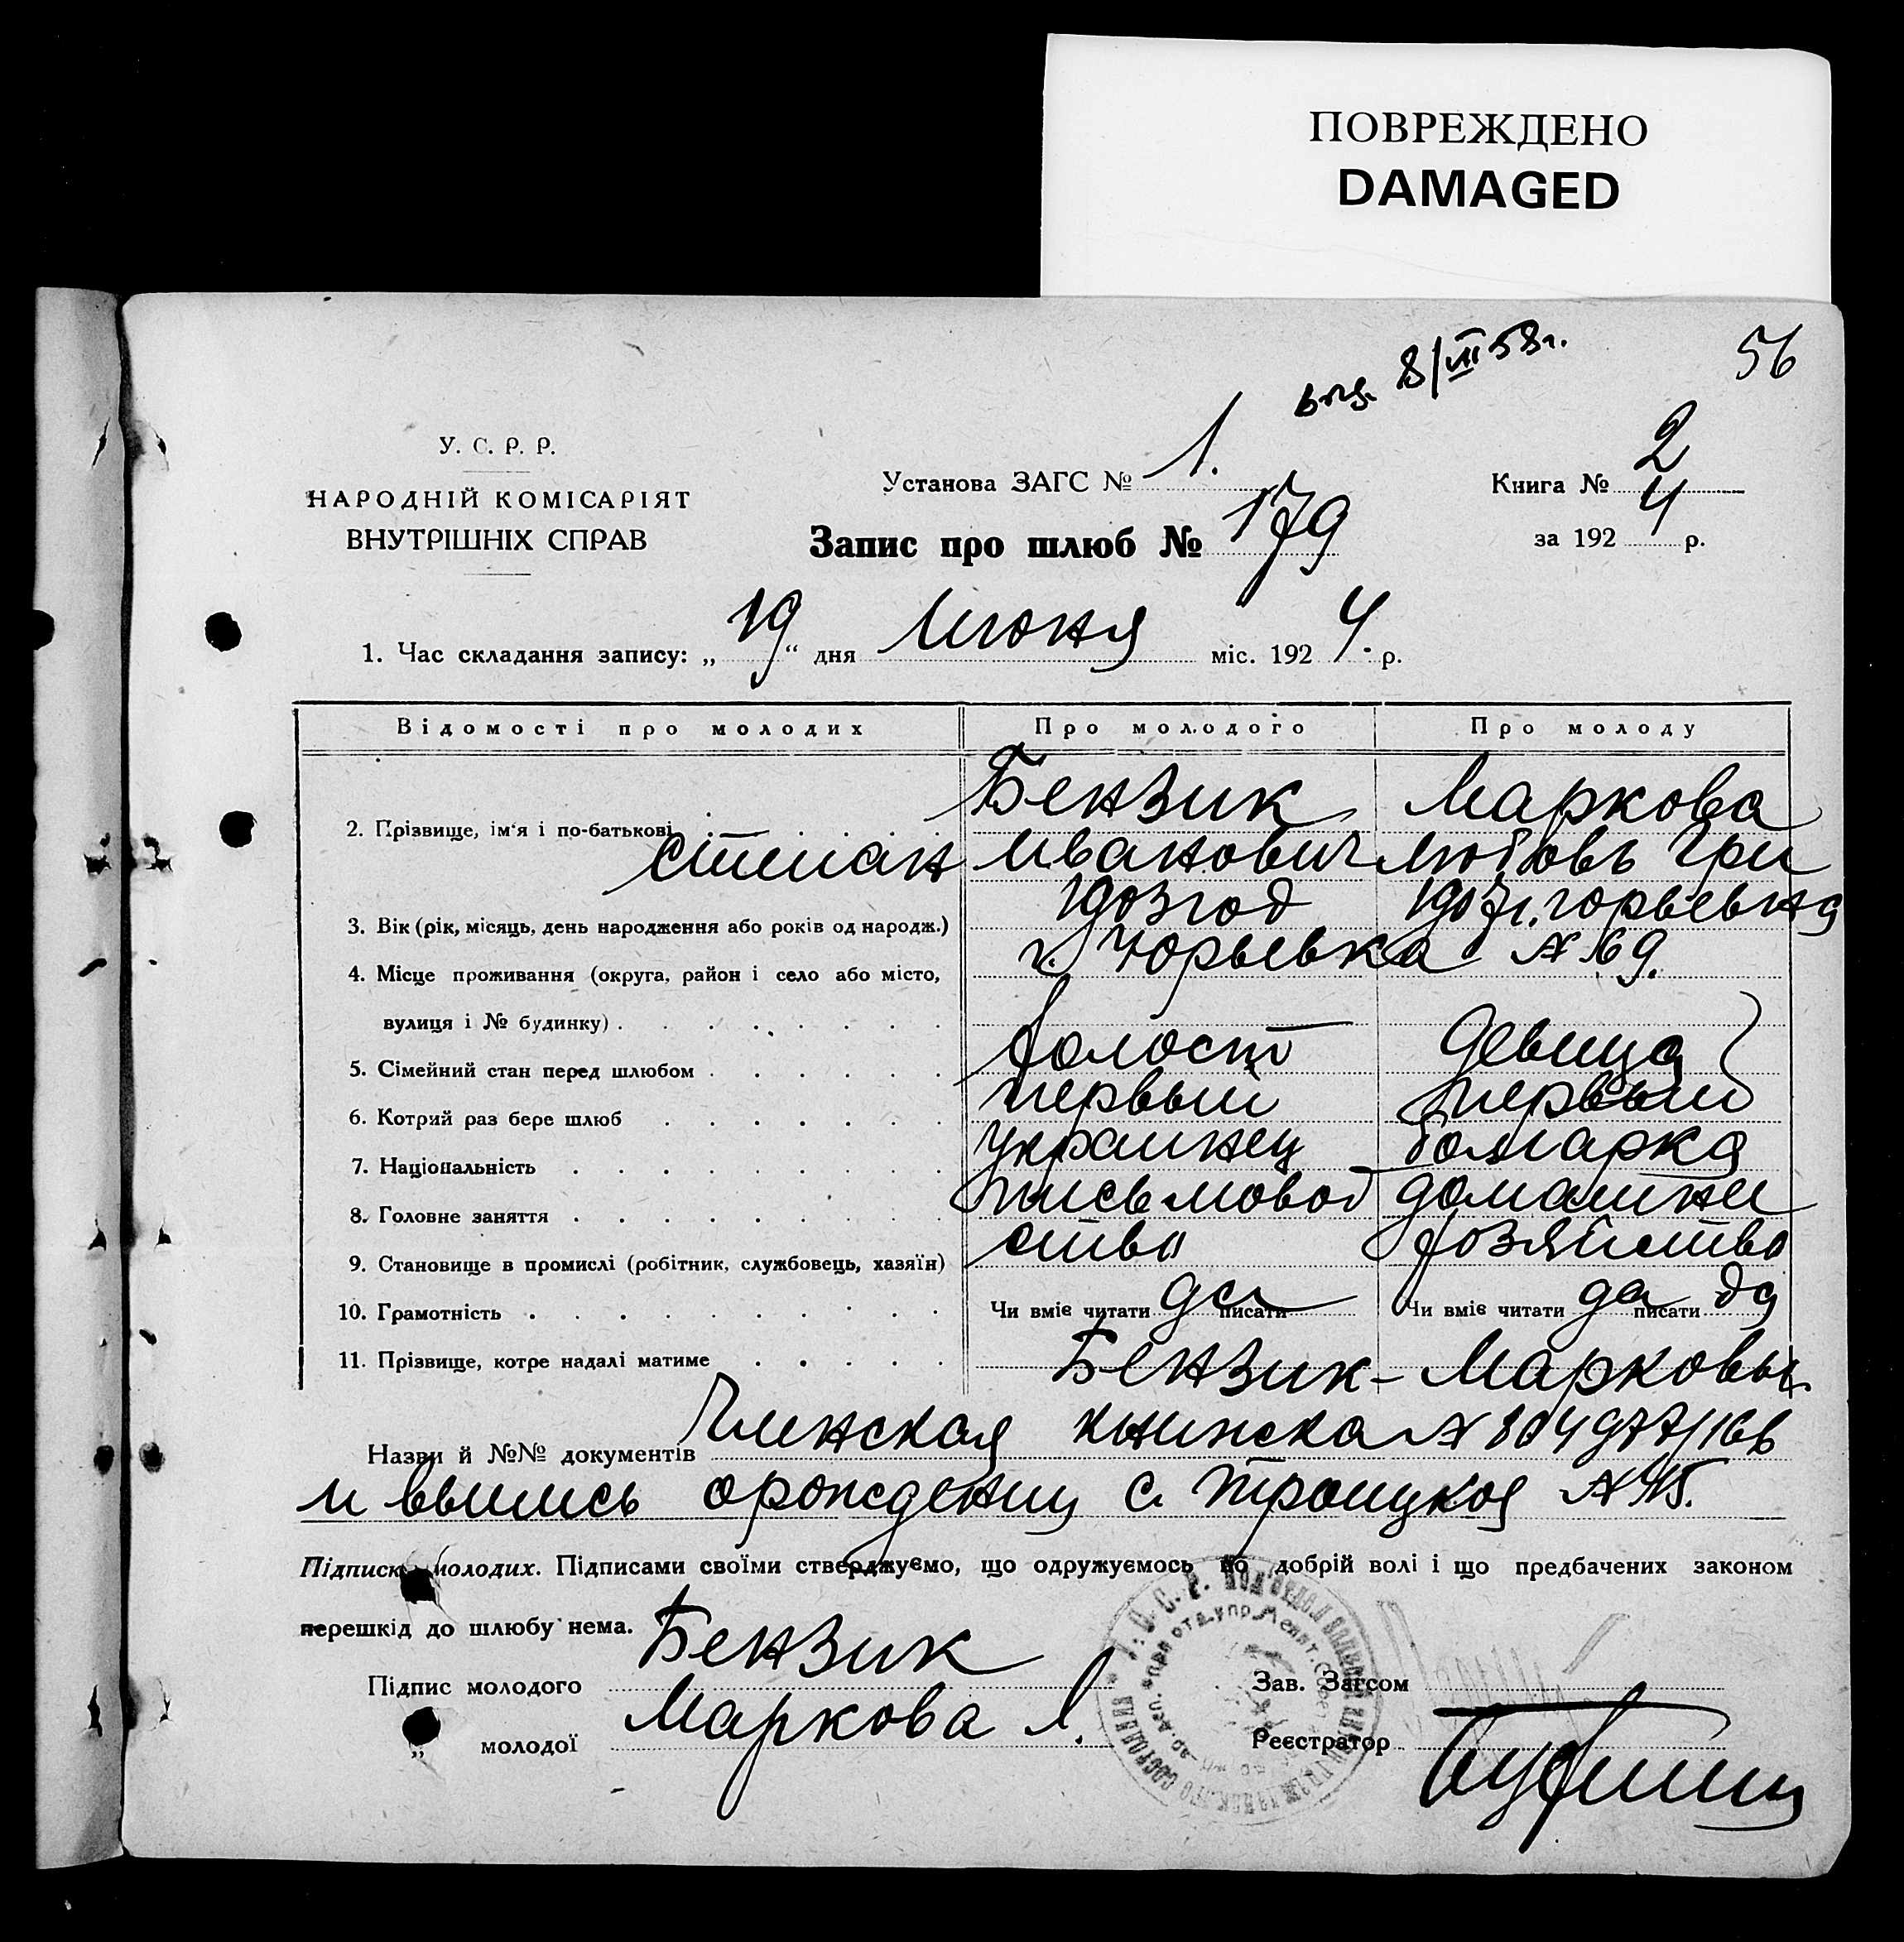 ПОВРЕЖДЕНО
DAMAGED
56
8/VII 58г.
У. С. Р. Р.
НАРОДНІЙ КОМІСАРІЯТ
ВНУТРІШНІХ СПРАВ
Установа ЗАГС № 1.
Книга № 2
Запис про шлюб № 179
за 1924 р.
1. Час складання запису: „19“ дня Июня міс. 1924. р.
Відомості про молодих Про молодого Про молоду
Бензик Маркова
2. Прізвище, ім'я і по-батькові Степан Иванович Любовь Гри
3. Вік (рік, місяць, день народження або років од народж.) 1903 год 1907 г. горьевна
4. Місце проживання (округа, район і село або місто, Юрьевка № 69.
вулиця і № будинку)
5. Сімейний стан перед шлюбом холост девица
6. Котрий раз бере шлюб первый первый
7. Національність украинец болгарка
8. Головне заняття письмовод домашнее
9. Становище в промислі (робітник, службовець, хазяїн) ство хозяйство
10. Грамотність Чи вміє читати да писати Чи вміє читати да писати да
11. Прізвище, котре надалі матиме Бензик - Марковы
Назви й №№ документів Членская книжка № 804977/166
и выпись о рождении с. Троицкое №
Підписи молодих. Підписами своїми стверджуємо, що одружуємось по добрій волі і що предбачених законом
перешкід до шлюбу нема.
Підпис молодого Бензик Зав. Загсом
„ молодої Маркова Л. Реєстратор